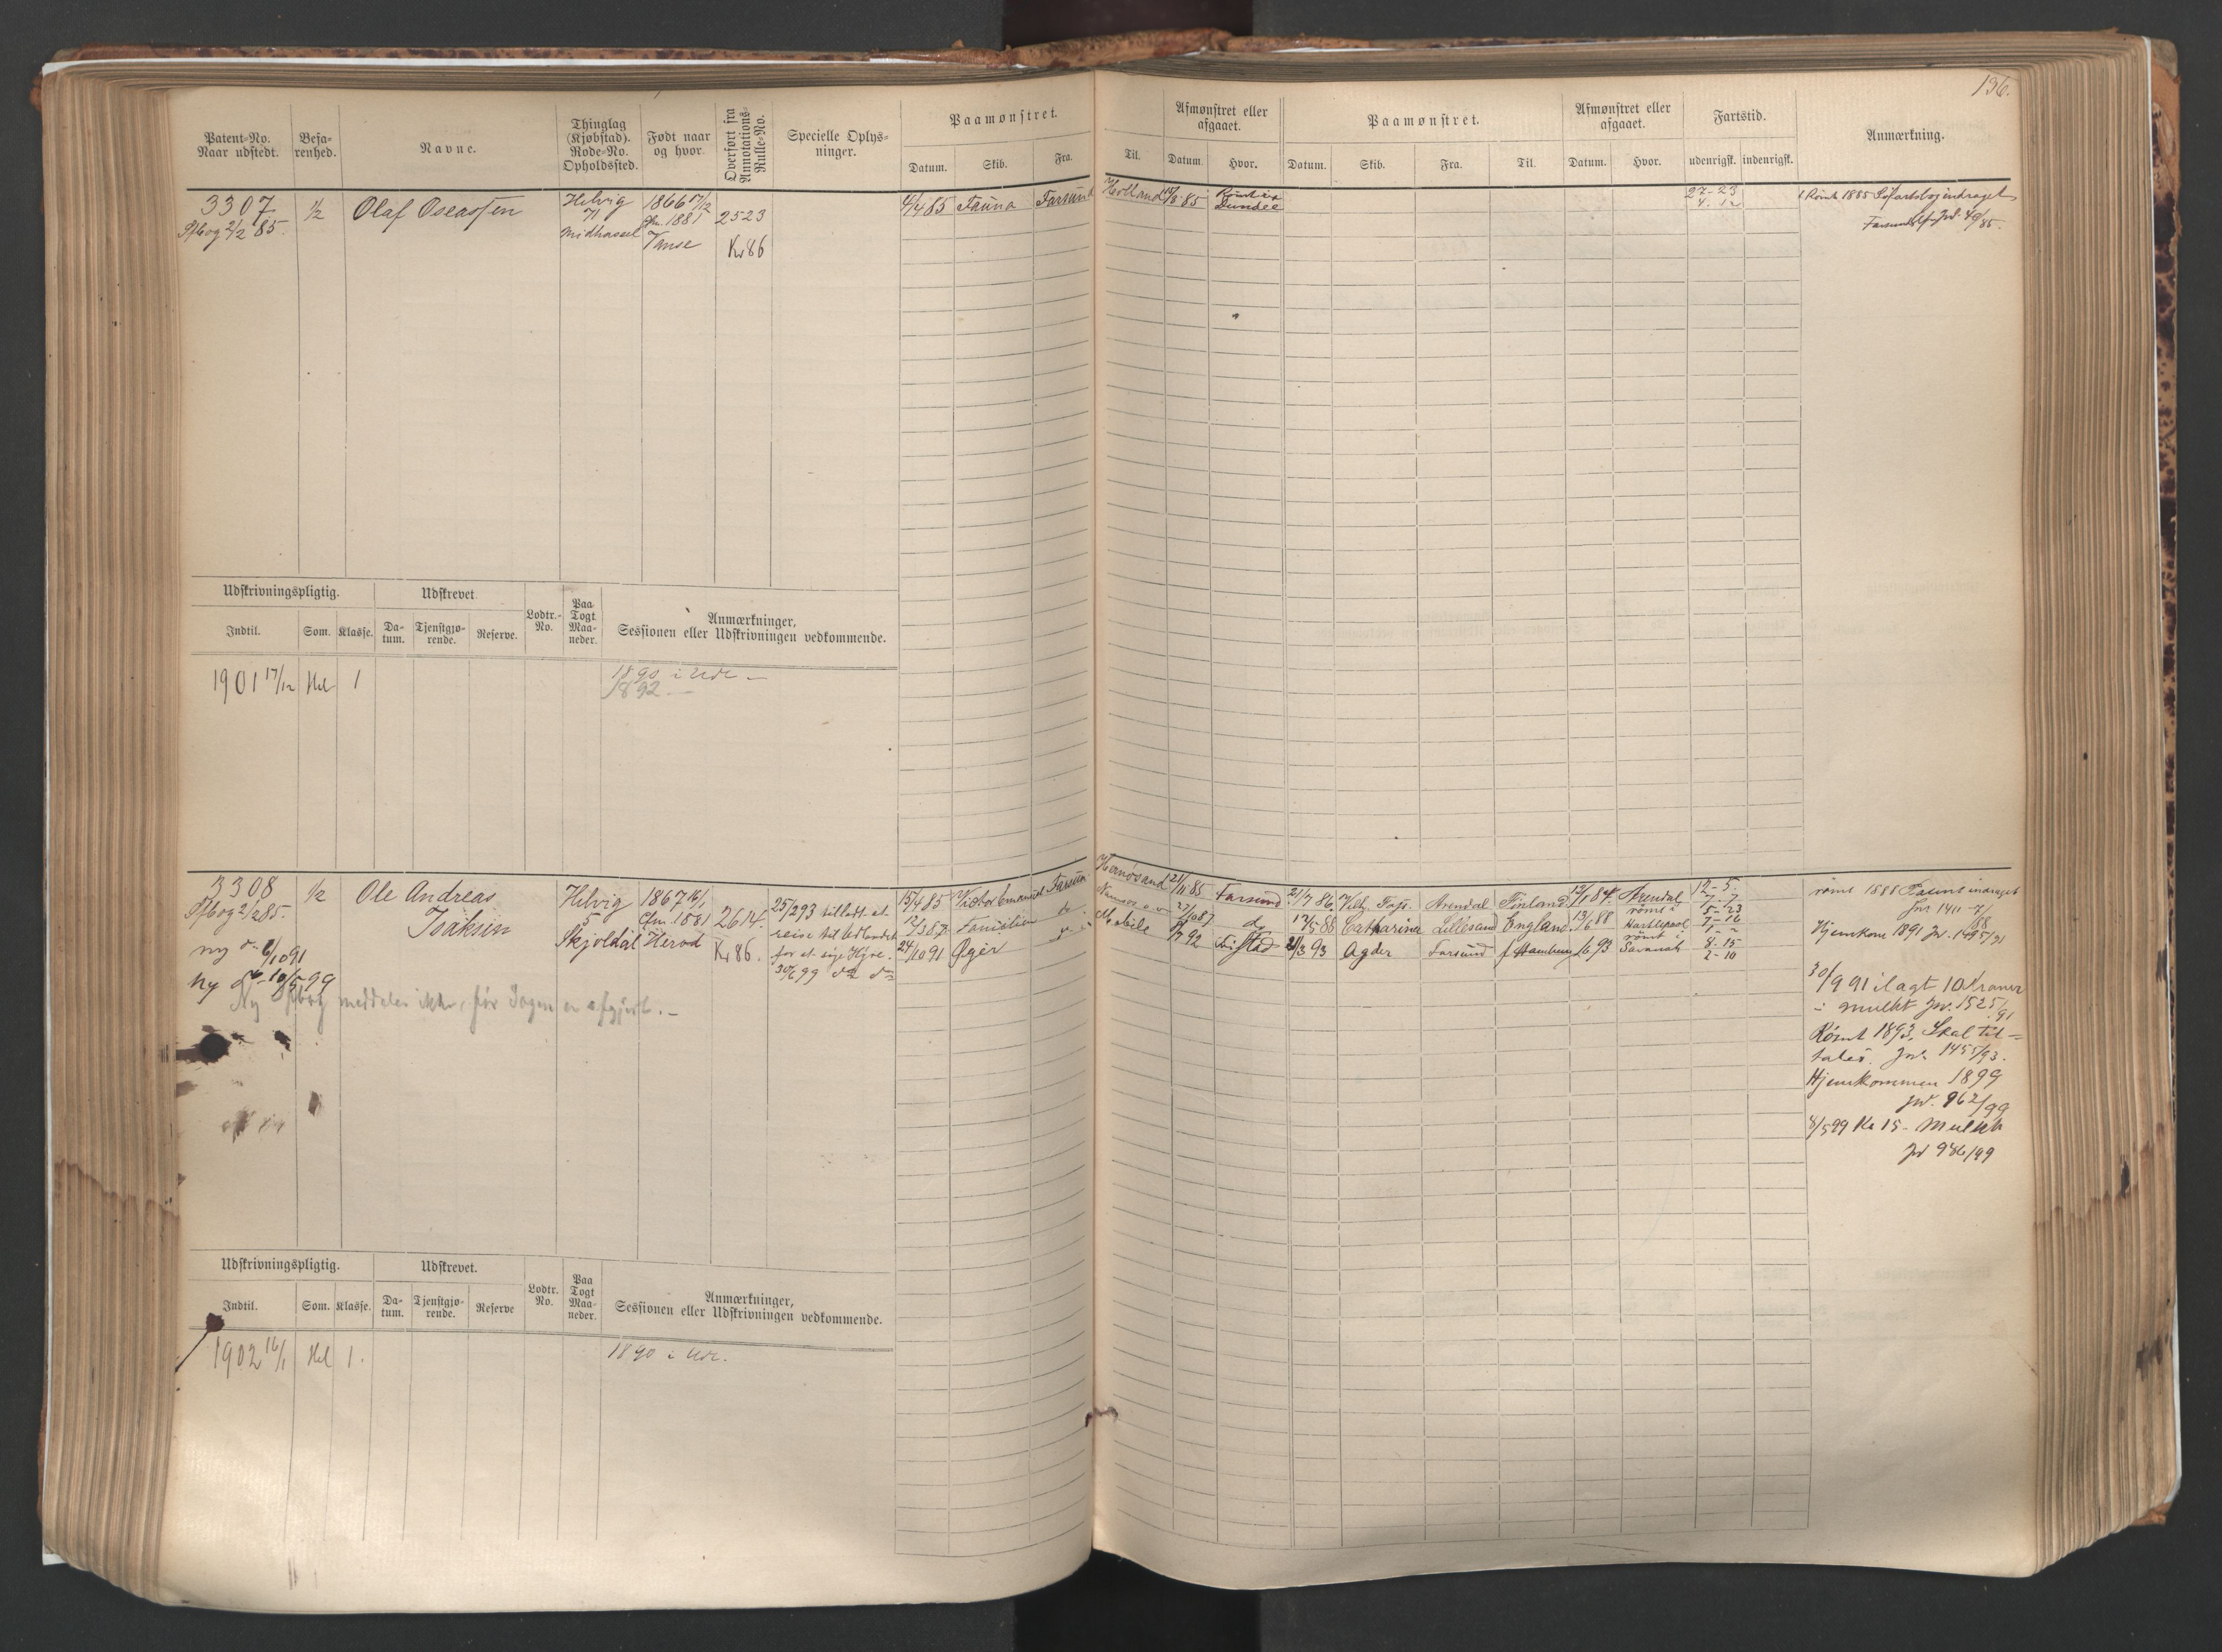 136.
Patent-No.
Naar udstedt.
Befa-
renhed.
Navne.
Thinglag
(Kjøbstad).
Rode-No.
Opholdssted.
Født naar
og hvor.
Overført fra
Annotations-
Rulle-No.
Specielle Oplys-
ninger.
Paamønstret.
Datum. Skib. Fra.
Til.
Afmønstret eller
afgaaet.
Datum. Hvor.
Paamønstret.
Datum. Skib. Fra. Til.
Afmønstret eller
afgaaet.
Datum. Hvor.
Fartstid.
udenrigsk. indenrigsk.
Anmærkning.
3307
Sfbog 2/2 85.
1/2
Olaf Oseassen
Helvig
71
Midhassel
1866 17/12
Cfn. 1881
Vanse
2523
Kr 86
4/4 85 Fauna Farsund
Holland 85 Rømt i
Dundee
27-23
4-12
Rømt 1885 Søfartsbog inddraget
Farsunds Jnl. 40/85.
Udskrivningspligtig. Udskrevet.
Indtil. Som. Klasse. Da-
tum. Tjenstgjø-
rende. Reserve.
Lodtr.-
No.
Paa
Togt
Maa-
neder.
Anmærkninger,
Sessionen eller Udskrivningen vedkommende.
1901 17/12 Hel 1
1890 i Udl. —
1892 —
3308
Sfbog 2/2 85.
ny do 6/10 91
Ny do 10/5 99
1/2
Ole Andreas
Isaksen
Helvig
5
Skjoldal
1867 16/1
Cfn. 1881
Herod
2614.
Kr 86.
25/2 93 tilladt at
reise til Udlandet
for at søge Hyre.
30/6 99 do do
Ny Sfbog meddeles ikke, før Sagen er afgjort. —
15/4 85 Victor Emanuel Farsund
12/3 87 Familien do
24/10 91 Øger do
Hernøsand 21/11 85 Farsund
Namsos 27/10 87 do
Mobile 92
21/7 86 Vilh. Arendal Finland 87 Arendal
12/5 88 Catharina Lillesand England 13/6 88 rømt i
Hartlepool
93 Agder Farsund Hamburg 93 rømt i
Savanah
12-5-
7-7
5-23
7-16
8-15
2-10
rømt 1888 Patent inddraget
Jnr 1411
Hjemkom 1891 Jnr.
30/9 91 ilagt 10 Kroner
i mulkt Jnr. 1525/91
Rømt 1893. Skal til-
tales. Jnr. 1455/93.
Hjemkommen 1899
Jnr. 962/99
8/5 99 Kr 15- Mulkt
Jnr 986/99
Udskrivningspligtig. Udskrevet.
Indtil. Som. Klasse. Da-
tum. Tjenstgjø-
rende. Reserve
Lodtr.
No.
Paa
Togt
Maa-
neder.
Anmærkninger,
Sessionen eller Udskrivningen vedkommende.
1902 16/1 Hel 1.
1890 i Udl.